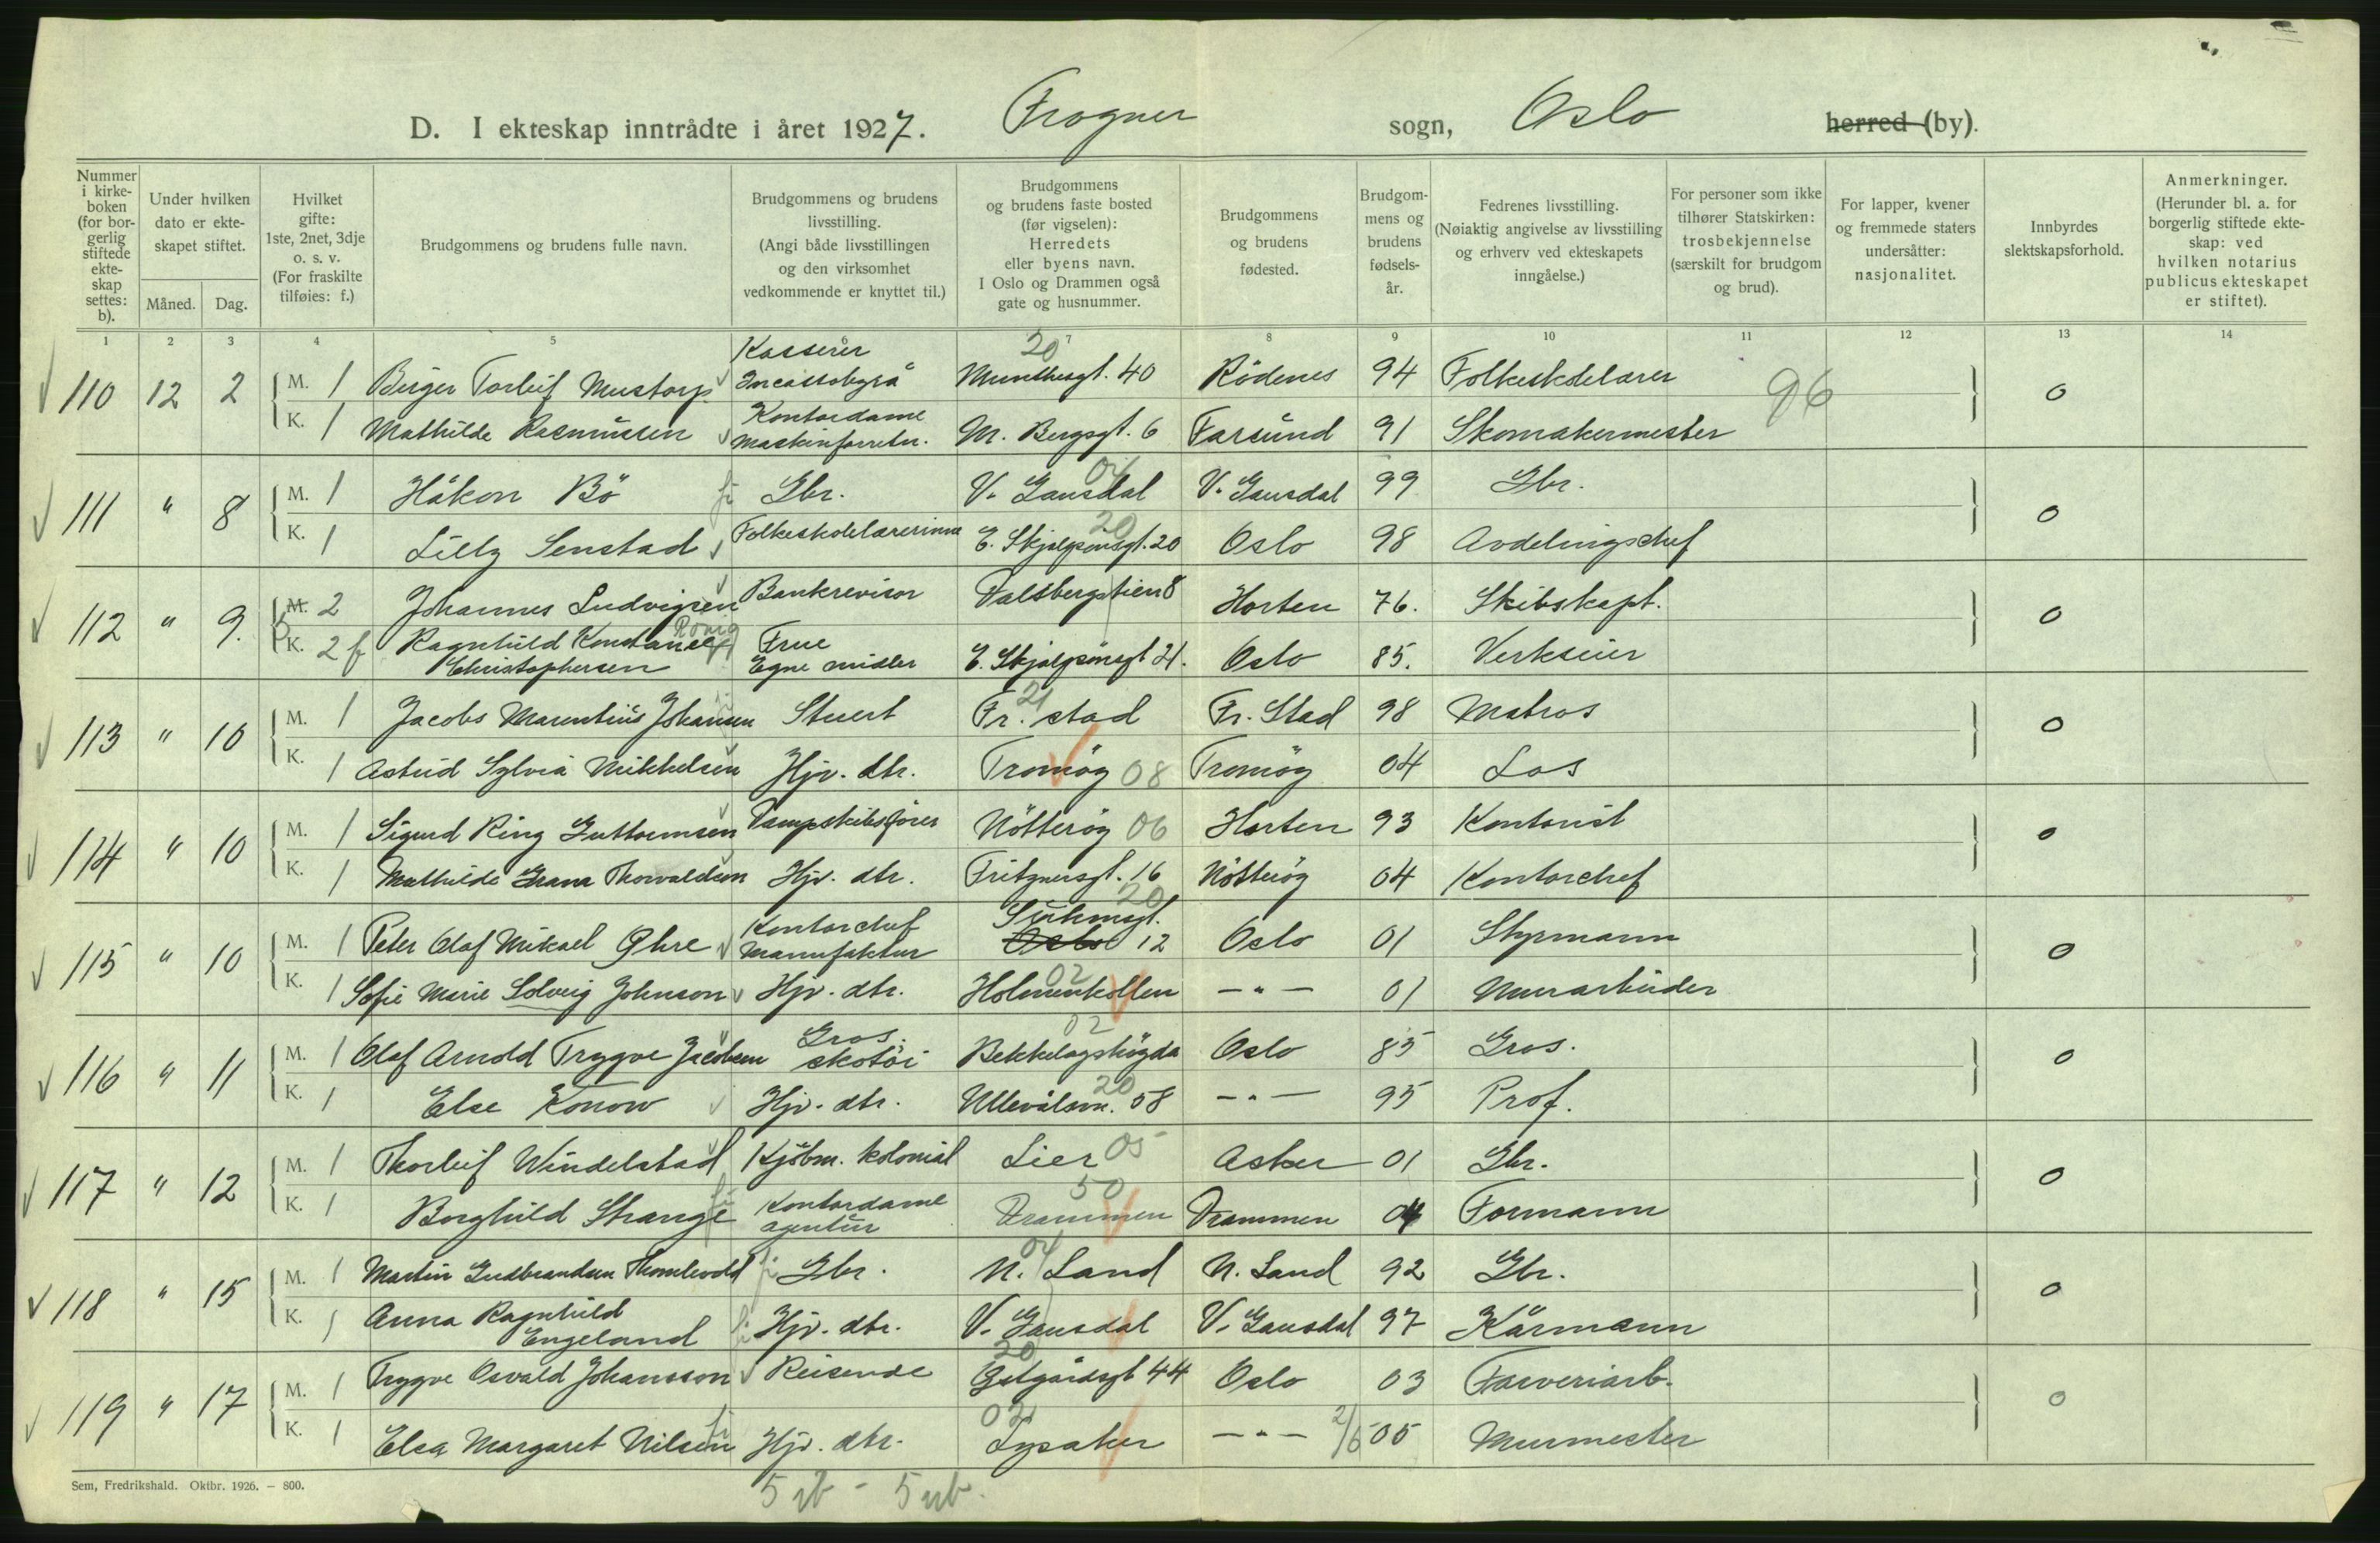 D. I ekteskap inntrådte i året 1927. Frogner sogn, Oslo herred (by).
Nummer i kirke-boken (for bor-gerlig stiftede ekte-skap settes: b).
Under hvilken dato er ekte-skapet stiftet.
Måned. Dag.
Hvilket gifte: 1ste, 2net, 3dje o. s. v. (For fraskilte tilføies: f.)
Brudgommens og brudens fulle navn.
Brudgommens og brudens livsstilling. (Angi både livsstillingen og den virksomhet vedkommende er knyttet til.)
Brudgommens og brudens faste bosted (før vigselen): Herredets eller byens navn. I Oslo og Drammen også gate og husnummer.
Brudgommens og brudens fødested.
Brudgom-mens og brudens fødsels-år.
Fedrenes livsstilling. (Nøiaktig angivelse av livsstilling og erhverv ved ekteskapets inngåelse.)
For personer som ikke tilhører Statskirken: trosbekjennelse (særskilt for brudgom og brud).
For lapper, kvener og fremmede staters undersåtter: nasjonalitet.
Innbyrdes slektskapsforhold.
Anmerkninger. (Herunder bl. a. for borgerlig stiftede ekte-skap: ved hvilken notarius publicus ekteskapet er stiftet).
1 2 3 4 5 7 8 9 10 11 12 13 14
110 12 2 M. 1 Birger Torleif Mustorp Kasserer Incassobyrå 20 Munthesgt. 40 Rödenes 94 Folkeskolelærer 96 0
K. 1 Mathilde Rasmussen Kontordame Maskinforretn. M. Bergsgt. 6 Farsund 91 Skomakermester
111 " 8 M. 1 Håkon Bö Gbr. 04 V. Gausdal V. Gausdal 99 Gbr. 0
K. 1 Lilly Senstad Folkeskolelærerinne 20 E. Skjalgsönsgt. 20 Oslo 98 Avdelingschef
112 " 9. M. 2 Johannes Ludvigsen Bankrevisor Valsbergstien 8 Horten 76. Skibskapt. 0
K. 2 f Ragnhild Konstanse Rönig Christophersen Frue Egne midler E. Skjalgsönsgt 21. Oslo 85. Verkseier
113 " 10 M. 1 Jacobs Marentius Johansen Stuert 21 Fr. stad Fr. Stad 98 Matros 0
K. 1 Astrid Sylvia Mikkelsen Hjv. dtr. Tromöy 08 Tromöy 04 Los
114 " 10 M. 1 Sigurd Ring Guttormsen Dampskibsförer Nötteröy 06 Horten 93 Kontorist 0
K. 1 Mathilde Grana Thorvaldsen Hjv. dtr. Fritznersgt. 16 Nötteröy 04 Kontorchef
115 " 10 M. 1 Peter Olaf Mikael Ohre Kontorchef Manufaktur 20 Suhmsgt. Oslo 12 Oslo 01 Styrmann 0
K. 1 Sofie Marie Solveig Johnson Hjv. dtr. 02 Holmenkollen — " — 01 Murarbeider
116 " 11 M. 1 Olaf Arnold Trygve Jacobsen Gros. skotöi 02 Bekkelagshögda Oslo 85 Gros. 0
K. 1 Else Konow Hjv. dtr. 20 Ullevålsvn. 58 — " — 95 Prof.
117 " 12 M. 1 Thorleif Windelstad Kjöbm. kolonial Lier 05 Asker 01 Gbr. 0
K. 1 Borghild Strange Kontordame agentur 50 Drammen Drammen 04 Formann
118 " 15 M. 1 Martin Gudbrandsen Thomlevold Gbr. 04 N. Land N. Land 92 Gbr. 0
K. 1 Anna Ragnhild Engeland Hjv. dtr. V. Gausdal V. Gausdal 97 Kårmann
119 " 17 M. 1 Trygve Osvald Johansson Reisende 20 Østgårdsgt 44 Oslo 03 Farveriarb. 0
K. 1 Elsa Margaret Nilsen Hjv. dtr. 02 Lysaker — " — 2/5 05 Murmester
Sem, Fredrikshald. Oktbr. 1926. – 800.